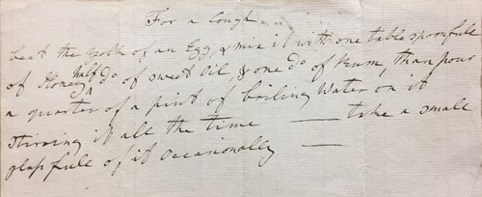 For a Cough
beat the yolk of an Egg, & mix it with one table spoonfull
of Honey, half do of sweet Oil, & one do of Rum, than pour
a quarter of a pint of boiling Water on it
stirring it all the time — take a small
glass full of it occasionally —